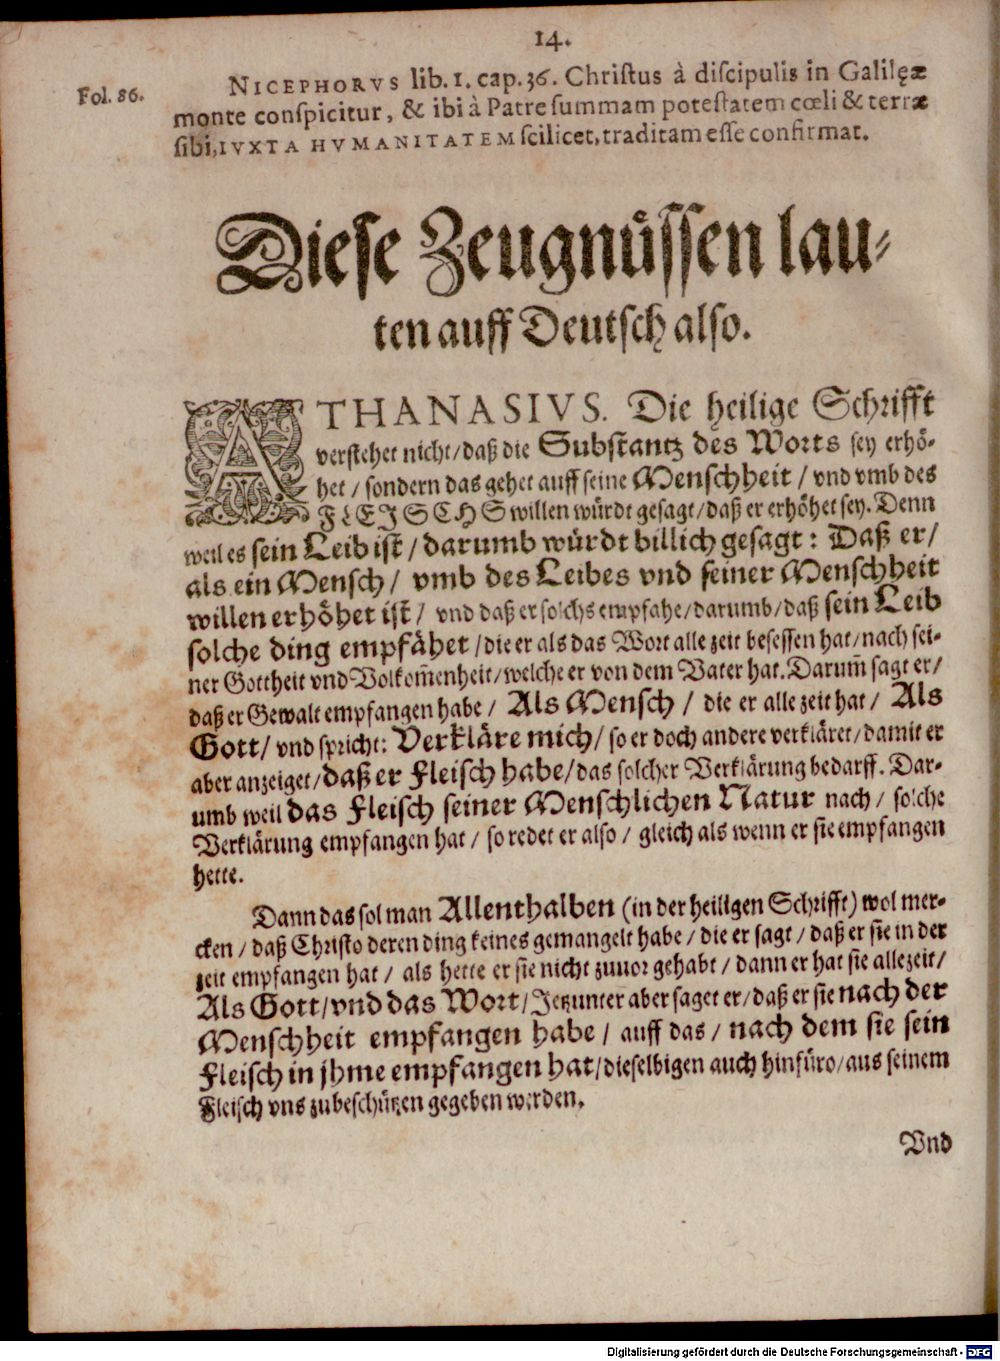 14.
Fol. 86.
NICEPHORVS lib. 1. cap. 36. Christus à discipulis in Galilęæ
monte conspicitur, & ibi à Patre summam potestatem cœli & terræ
sibi, IVXTA HVMANITATEM scilicet, traditam esse confirmat.
Diese Zeugnüssen lau⸗
ten auff Deutsch also.
ATHANASIVS. Die heilige Schrifft
verstehet nicht/ daß die Substantz des Worts sey erhö⸗
het / sondern das gehet auff seine Menschheit / vnd vmb des
FLEISCHS willen würdt gesagt/ daß er erhöhet sey. Denn
weil es sein Leib ist / darumb würdt billich gesagt: Daß er/
als ein Mensch / vmb des Leibes vnd seiner Menschheit
willen erhöhet ist / vnd daß er solchs empfahe/ darumb/ daß sein Leib
solche ding empfähet / die er als das Wort alle zeit besessen hat/ nach sei⸗
ner Gottheit vnd Volkom̄enheit/ welche er von dem Vater hat. Darum̄ sagt er/
daß er Gewalt empfangen habe / Als Mensch / die er alle zeit hat / Als
Gott/ vnd spricht: Verkläre mich/ so er doch andere verkläret/ damit er
aber anzeiget/ daß er Fleisch habe/ das solcher Verklärung bedarff. Dar⸗
umb weil das Fleisch seiner Menschlichen Natur nach / solche
Verklärung empfangen hat / so redet er also / gleich als wenn er sie empfangen
hette.
Dann das sol man Allenthalben (in der heiligen Schrifft) wol mer⸗
cken / daß Christo deren ding keines gemangelt habe / die er sagt / daß er sie in der
zeit empfangen hat / als hette er sie nicht zuuor gehabt / dann er hat sie allezeit/
Als Gott/ vnd das Wort/ Jetzunter aber saget er/ daß er sie nach der
Menschheit empfangen habe / auff das / nach dem sie sein
Fleisch in jhme empfangen hat/ dieselbigen auch hinfüro/ aus seinem
Fleisch vns zubeschützen gegeben werden.
Vnd
Digitalisierung gefördert durch die Deutsche Forschungsgemeinschaft - DFG